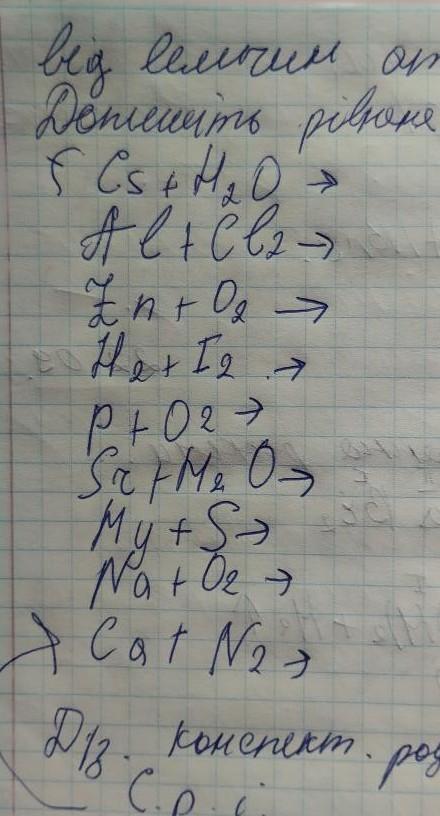 від величин от
Допишіть рівнян
Cs + H2O →
Al + Cl2 →
Zn + O2 →
H2 + I2 →
P + O2 →
Sr + H2O →
Mg + S →
Na + O2 →
Ca + N2 →
D/з. конспект. роз
С.р.і.